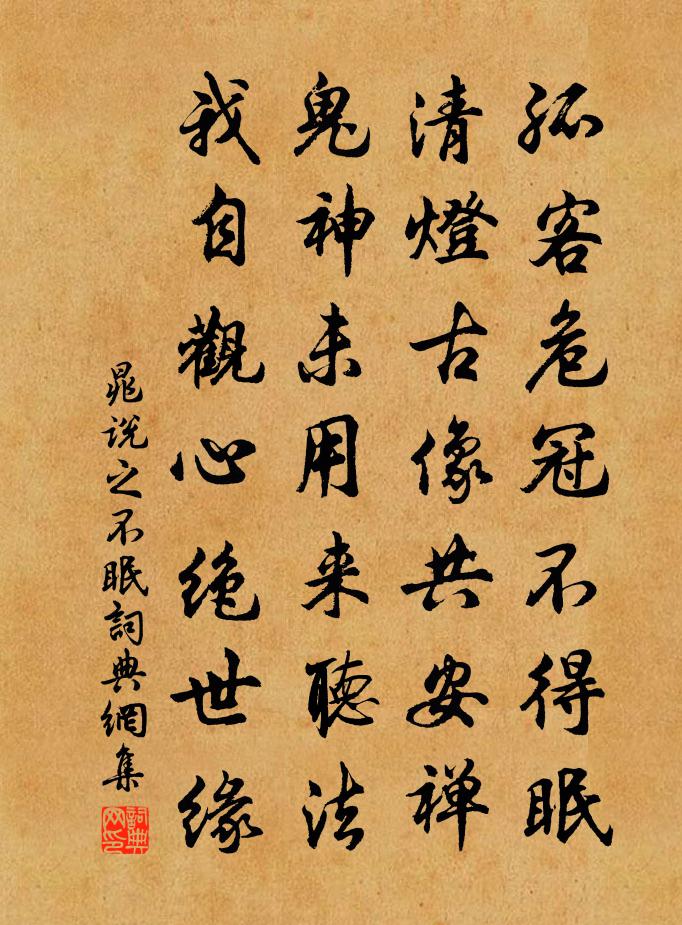 孤客危冠不得眠
清燈古像共安禅
鬼神未用来聽法
我自觀心绝世缘
晁说之不眠詞典網集
詞典网印